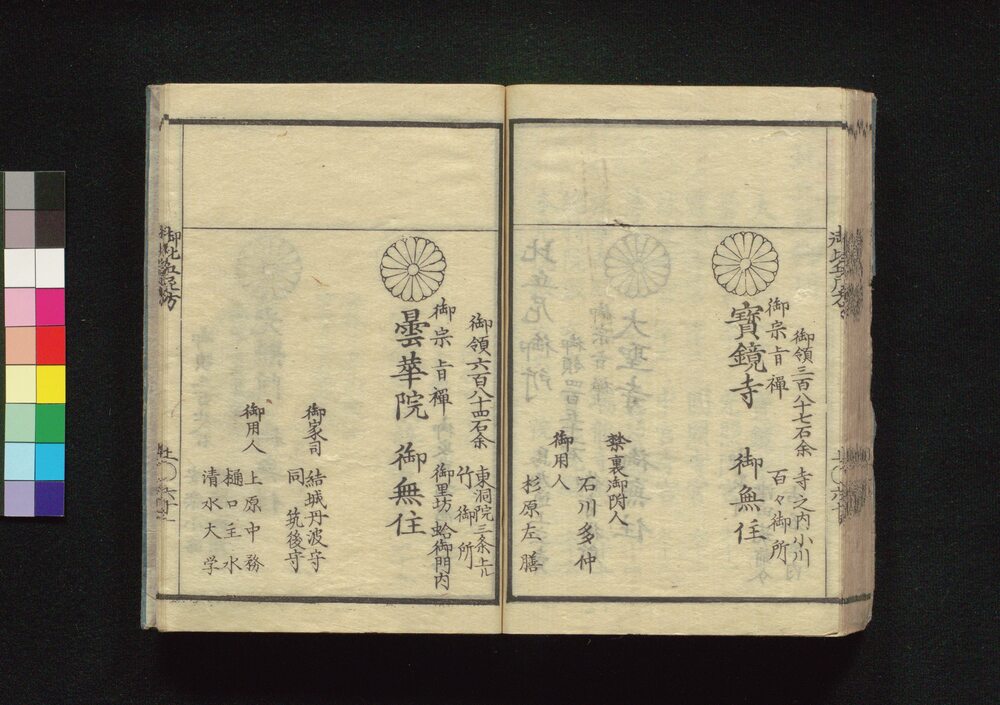 御領三百八十七石余
寺之内小川
百々御所
御宗旨禅
寳鏡寺　御無住
禁裏御附人
石川多仲
御用人
杉原左膳
御領六百八十四石余
東洞院三条上ル
竹御所
御宗旨禅
御里坊　蛤御門内
曇華院　御無住
御家司
結城丹波守
同　筑後守
御用人
上原中務
樋口主水
清水大学
御比丘尼方